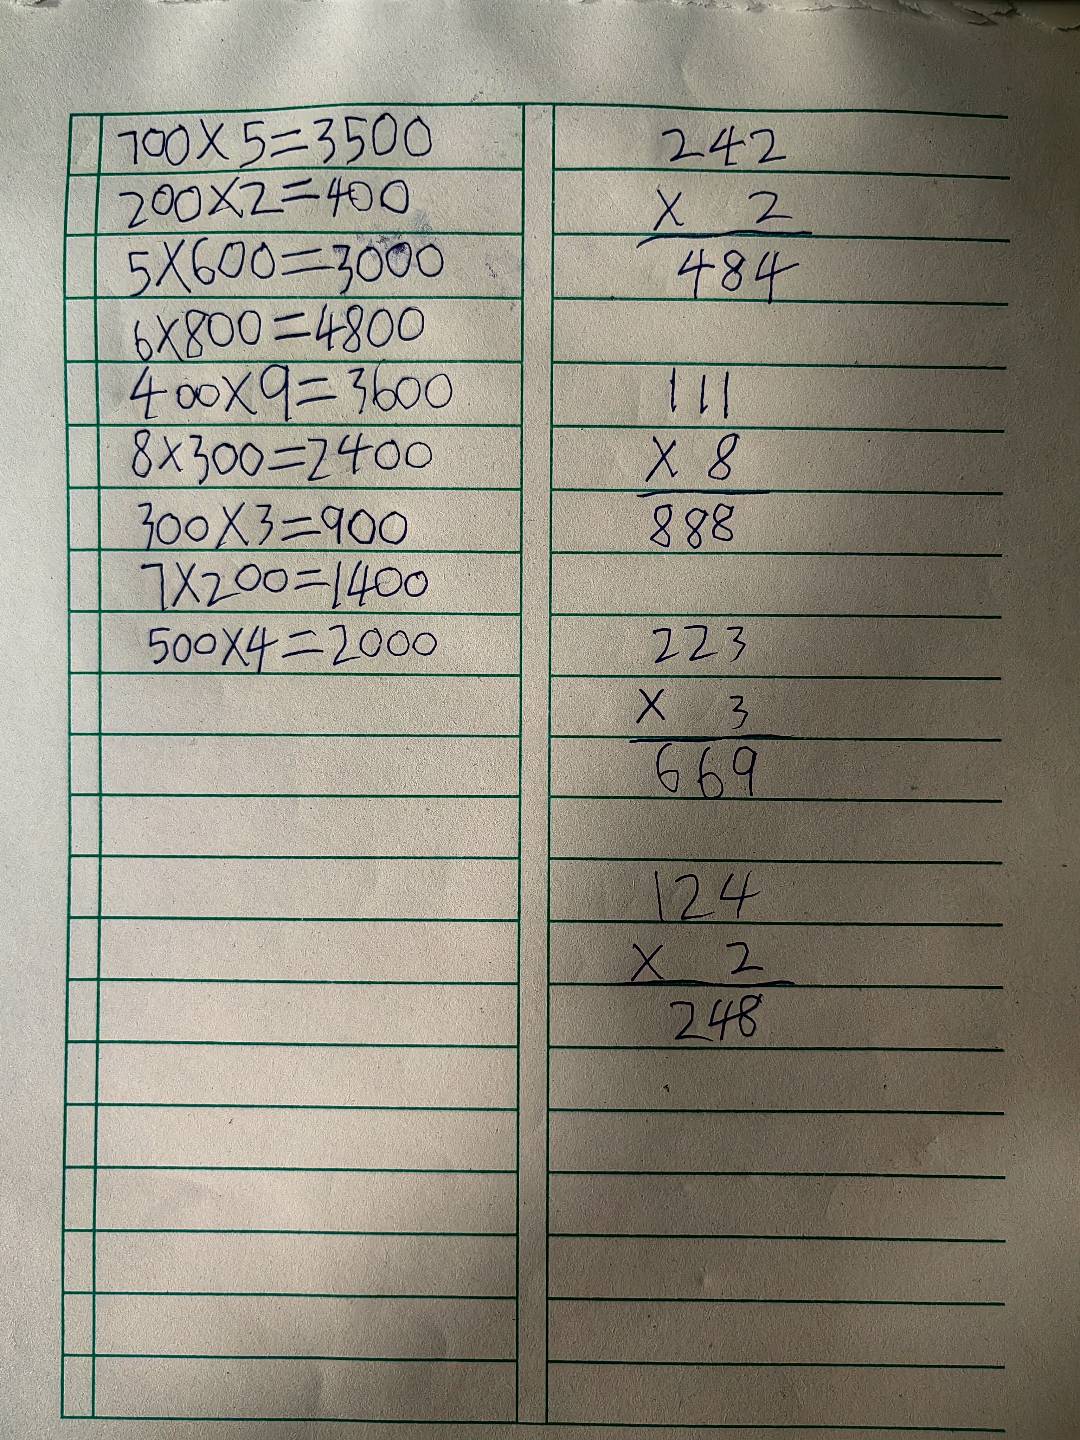 700×5=3500
200×2=400
5×600=3000
6×800=4800
400×9=3600
8×300=2400
300×3=900
7×200=1400
500×4=2000
242
× 2
484
111
× 8
888
223
× 3
669
124
× 2
248